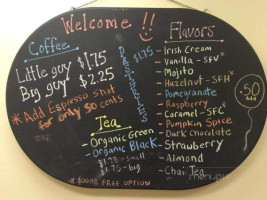 Welcome !!
Coffee
Little guy $1.75
Big guy $2.25
* Add Espresso shot
for only 50 cents
Tea
- Organic Green
- Organic Black
$1.75 - small
$1.75 - big
* SUGAR FREE OPTION
PASTRIES
$1.75
Flavors
- Irish Cream
- Vanilla - SFV*
- Mojito
- Hazelnut - SFH*
- Pomegranate
- Raspberry
- Caramel - SFC*
- Pumpkin Spice
- Dark Chocolate
- Strawberry
- Almond
- Chai Tea
.50